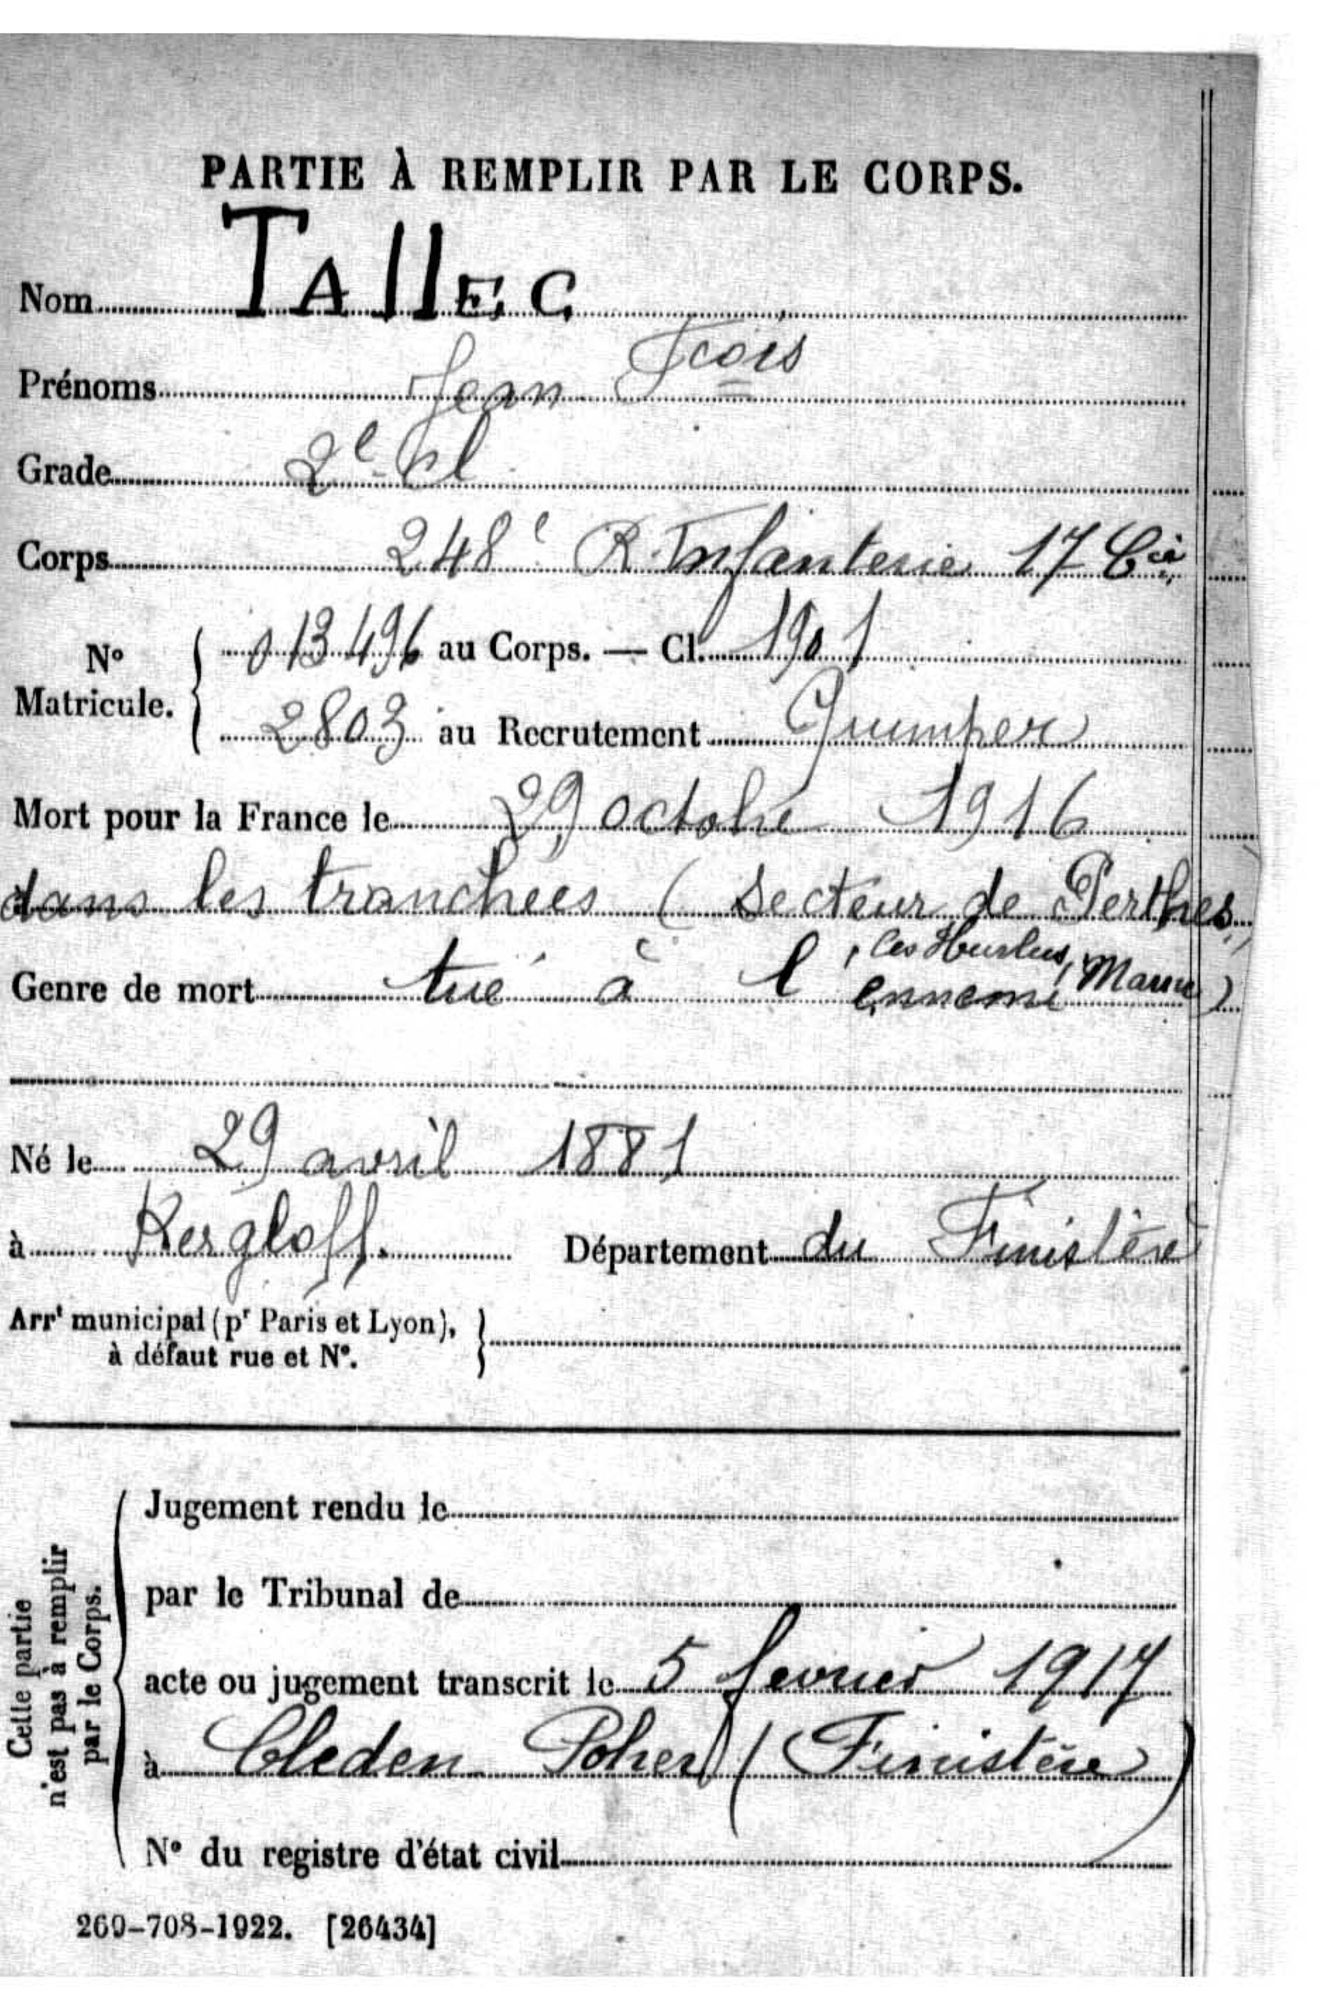 PARTIE À REMPLIR PAR LE CORPS.
Nom TAllEC
Prénoms Jean Fcois
Grade 2e Cl
Corps 248e R. Infanterie 17 Cie
No Matricule. 013496 au Corps. — Cl. 1901
2803 au Recrutement Quimper
Mort pour la France le 29 octobre 1916
dans les tranchées (Secteur de Perthes,
les Hurlus, Marne)
Genre de mort tué à l'ennemi
Né le 29 avril 1881
à Kergloff. Département du Finistère
Arrt municipal (pr Paris et Lyon),
à défaut rue et No.
Cette partie
n'est pas à remplir
par le Corps.
Jugement rendu le
par le Tribunal de
acte ou jugement transcrit le 5 fevrier 1917
à Cleden Poher (Finistère)
No du registre d'état civil
260-708-1922. [26434]